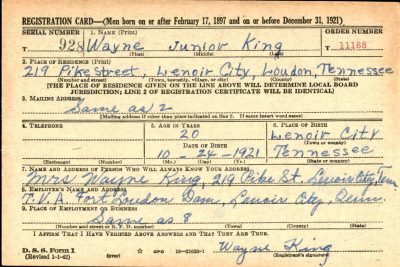 REGISTRATION CARD—(Men born on or after February 17, 1897 and on or before December 31, 1921)
SERIAL NUMBER 1. NAME (Print) ORDER NUMBER
T 928 Wayne Junior King T 11188
(First) (Middle) (Last)
2. PLACE OF RESIDENCE (Print)
219 Pike Street, Lenoir City, Loudon, Tennessee
(Number and street) (Town, township, village, or city) (County) (State)
[THE PLACE OF RESIDENCE GIVEN ON THE LINE ABOVE WILL DETERMINE LOCAL BOARD
JURISDICTION; LINE 2 OF REGISTRATION CERTIFICATE WILL BE IDENTICAL]
3. MAILING ADDRESS
Same as 2
[Mailing address if other than place indicated on line 2. If same insert word same]
4. TELEPHONE 5. AGE IN YEARS 6. PLACE OF BIRTH
20 Lenoir City
DATE OF BIRTH (Town or county)
10 - 24 - 1921 Tennessee
(Exchange) (Number) (Mo.) (Day) (Yr.) (State or country)
7. NAME AND ADDRESS OF PERSON WHO WILL ALWAYS KNOW YOUR ADDRESS
Mrs Wayne King, 219 Pike St. Lenoir City, Tenn.
8. EMPLOYER'S NAME AND ADDRESS
T.V.A. Fort Loudon Dam, Lenoir City, Tenn.
9. PLACE OF EMPLOYMENT OR BUSINESS
Same as 8
(Number and street or R. F. D. number) (Town) (County) (State)
I AFFIRM THAT I HAVE VERIFIED ABOVE ANSWERS AND THAT THEY ARE TRUE.
D. S. S. Form 1 GPO Wayne King
(Revised 1-1-42) (Registrant's signature)